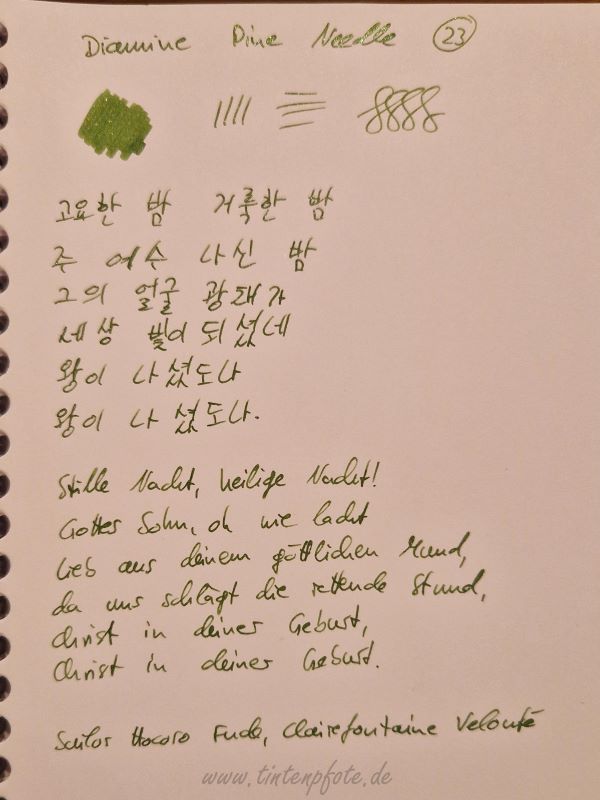 Diamine Pine Needle 23
고요한 밤 거룩한 밤
주 예수 나신 밤
그의 얼굴 광채가
세상 빛이 되셨네
왕이 나셨도다
왕이 나셨도다.
Stille Nacht, heilige Nacht!
Gottes Sohn, oh wie lacht
Lieb aus deinem göttlichen Mund,
da uns schlägt die rettende Stund,
Christ in deiner Geburt,
Christ in deiner Geburt.
Sailor Hocoro Fude, Clairefontaine Velouté
www.tintenpfote.de